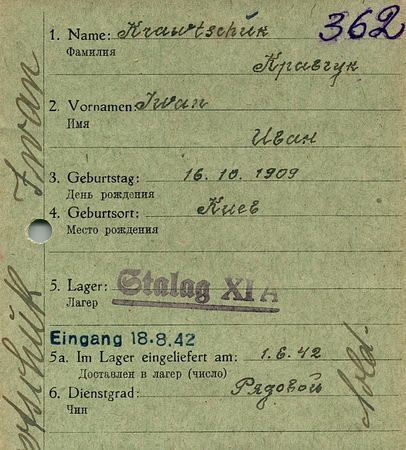 362
1. Name: Krawtschuk
Фамилия
Кравчук
2. Vornamen: Iwan
Имя
Иван
3. Geburtstag: 16. 10. 1909
День рождения
4. Geburtsort: Киев
Место рождения
5. Lager: Stalag XI A
Лагер
Eingang 18.8.42
5a. Im Lager eingeliefert am: 1. 6. 42
Доставлен в лагер (число)
6. Dienstgrad: Рядовой
Чин
Sold.
Iwan